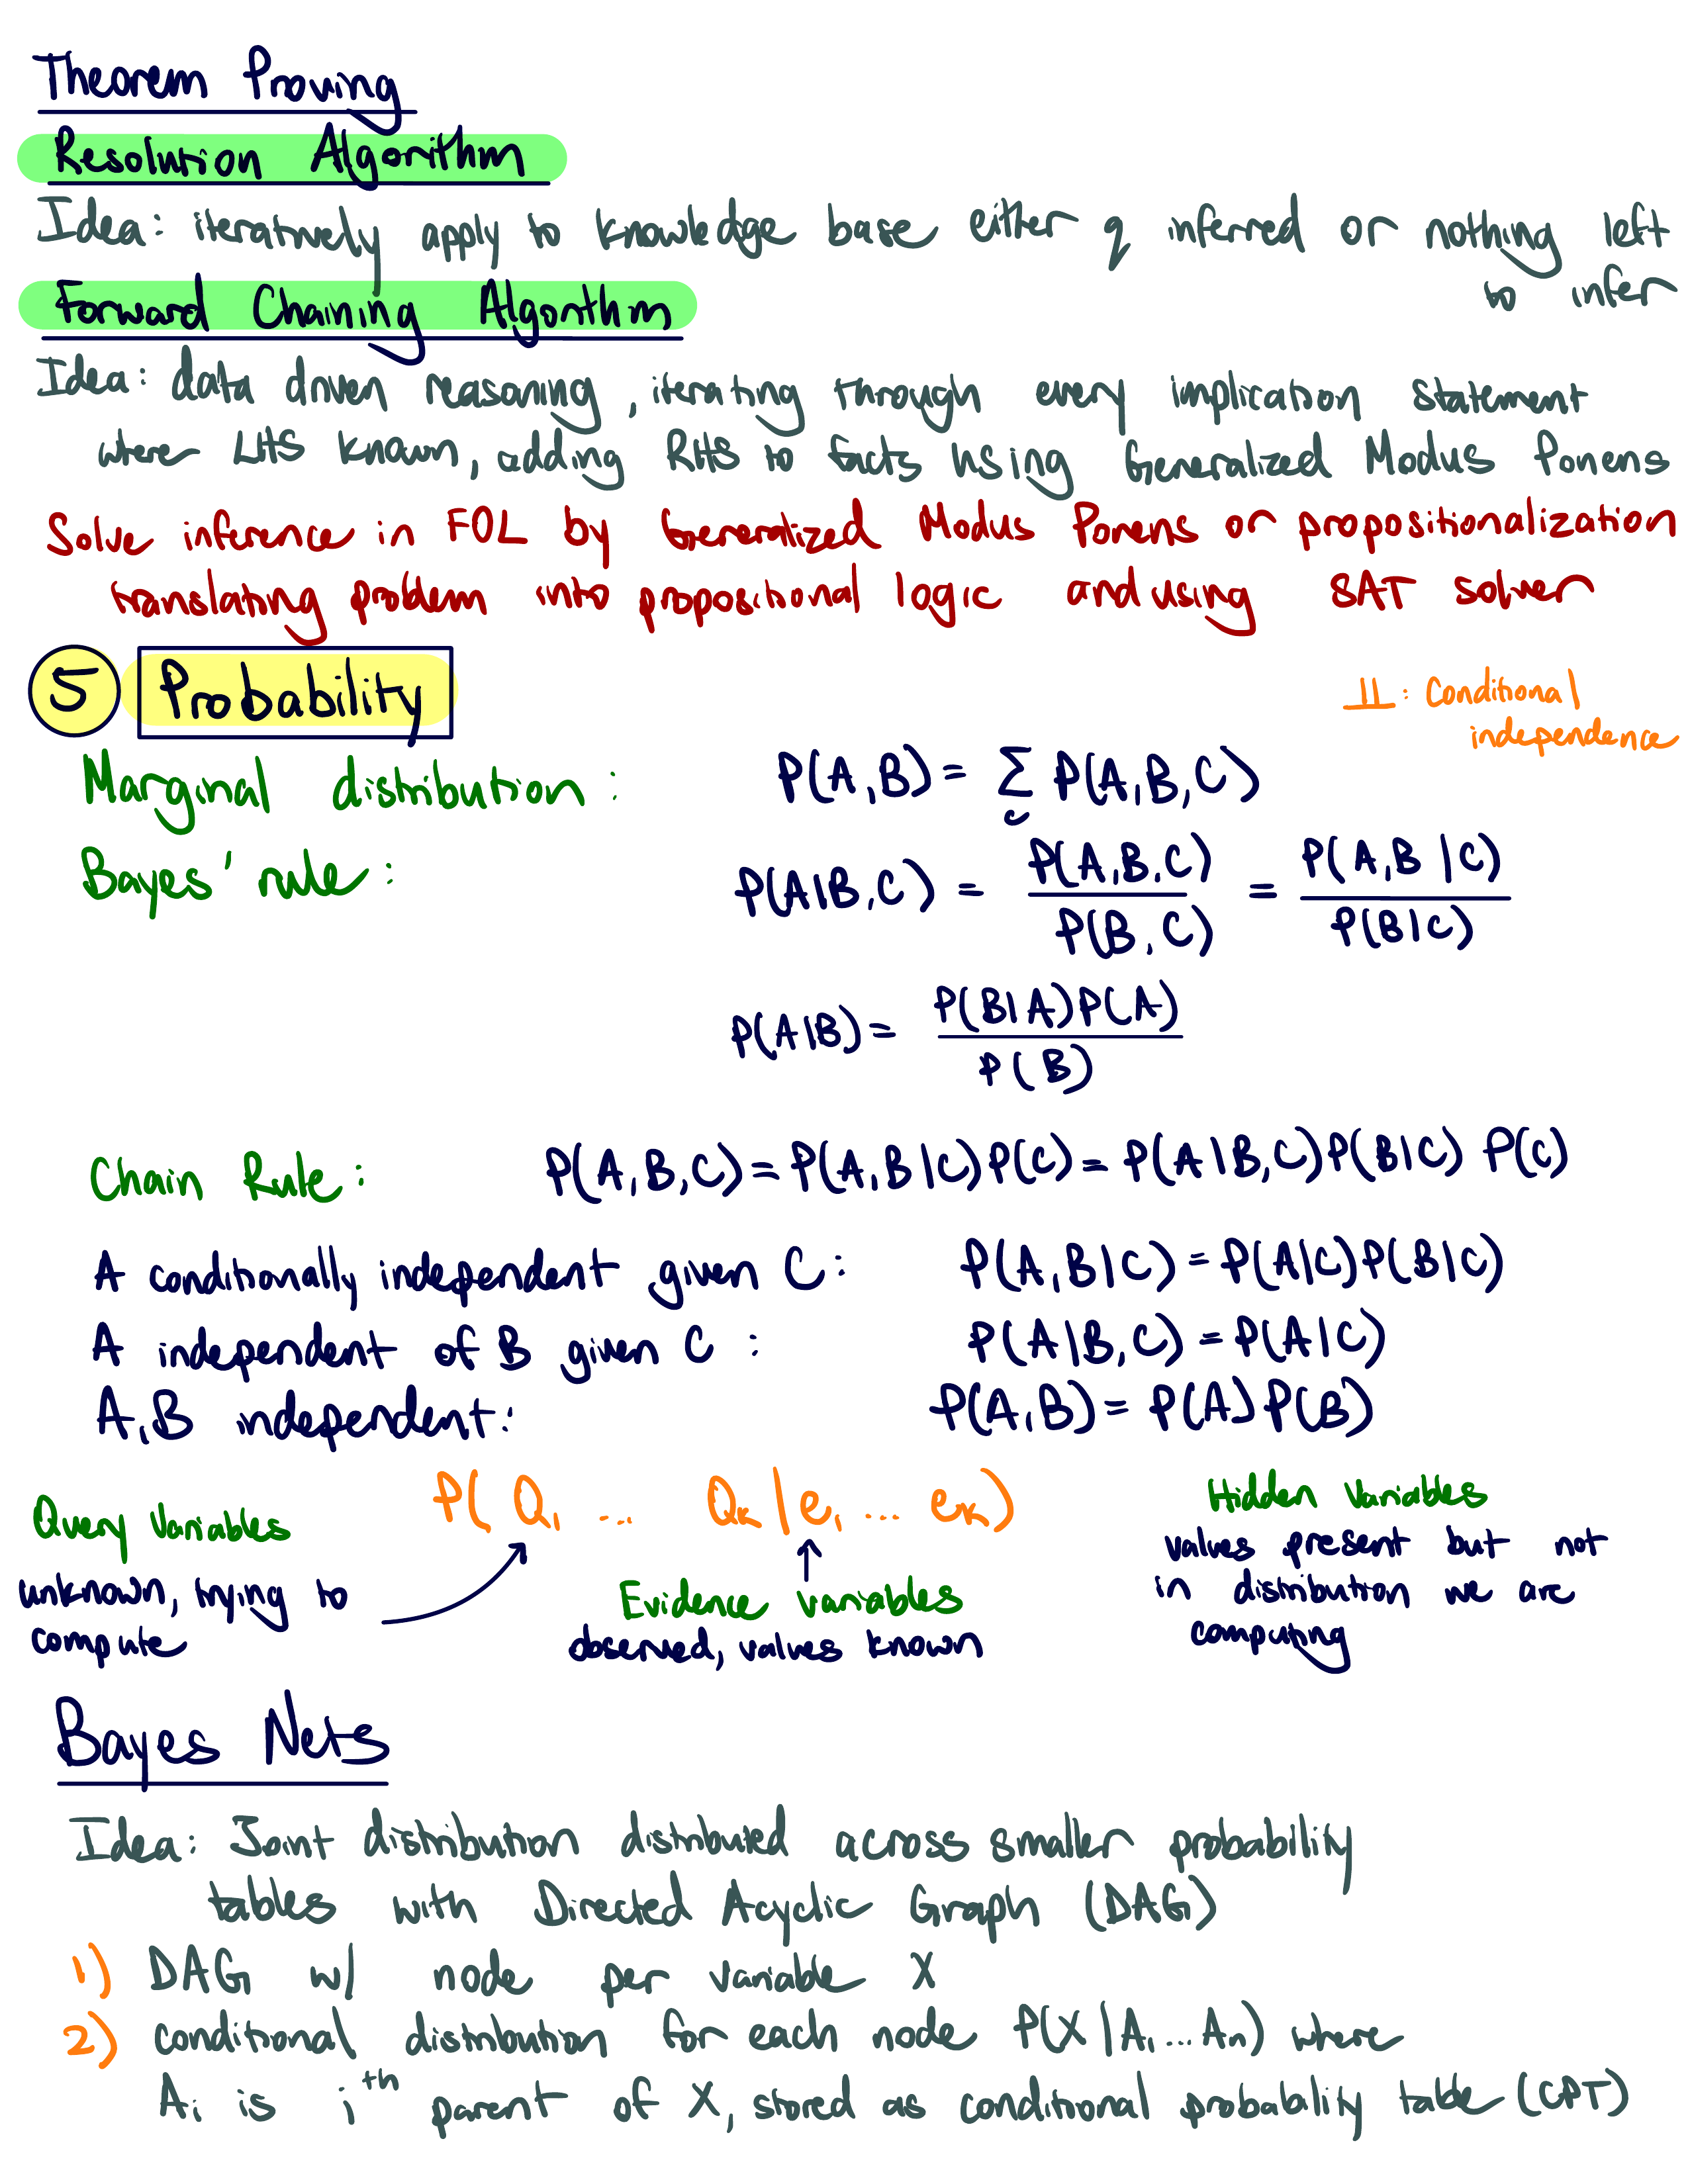 Theorem Proving
Resolution Algorithm
Idea: iteratively apply to knowledge base either q inferred or nothing left
to infer
Forward Chaining Algorithm
Idea: data driven reasoning, iterating through every implication statement
where LHS known, adding RHS to facts using Generalized Modus Ponens
Solve inference in FOL by Generalized Modus Ponens or propositionalization
translating problem into propositional logic and using SAT solver
5 Probability
⊥⊥: Conditional
independence
Marginal distribution: P(A,B) = Σ_c P(A,B,C)
Bayes' rule: P(A|B,C) = P(A,B,C) / P(B,C) = P(A,B|C) / P(B|C)
P(A|B) = P(B|A)P(A) / P(B)
Chain Rule: P(A,B,C) = P(A,B|C)P(C) = P(A|B,C)P(B|C) P(C)
A conditionally independent given C: P(A,B|C) = P(A|C)P(B|C)
A independent of B given C: P(A|B,C) = P(A|C)
A,B independent: P(A,B) = P(A)P(B)
P(Q₁ ... Qₖ | e₁ ... eₖ)
Query Variables
unknown, trying to
compute
Evidence variables
observed, values known
Hidden Variables
values present but not
in distribution we are
computing
Bayes Nets
Idea: Joint distribution distributed across smaller probability
tables with Directed Acyclic Graph (DAG)
1) DAG w/ node per variable X
2) conditional distribution for each node P(X|A₁...Aₙ) where
Aᵢ is iᵗʰ parent of X, stored as conditional probability table (CPT)